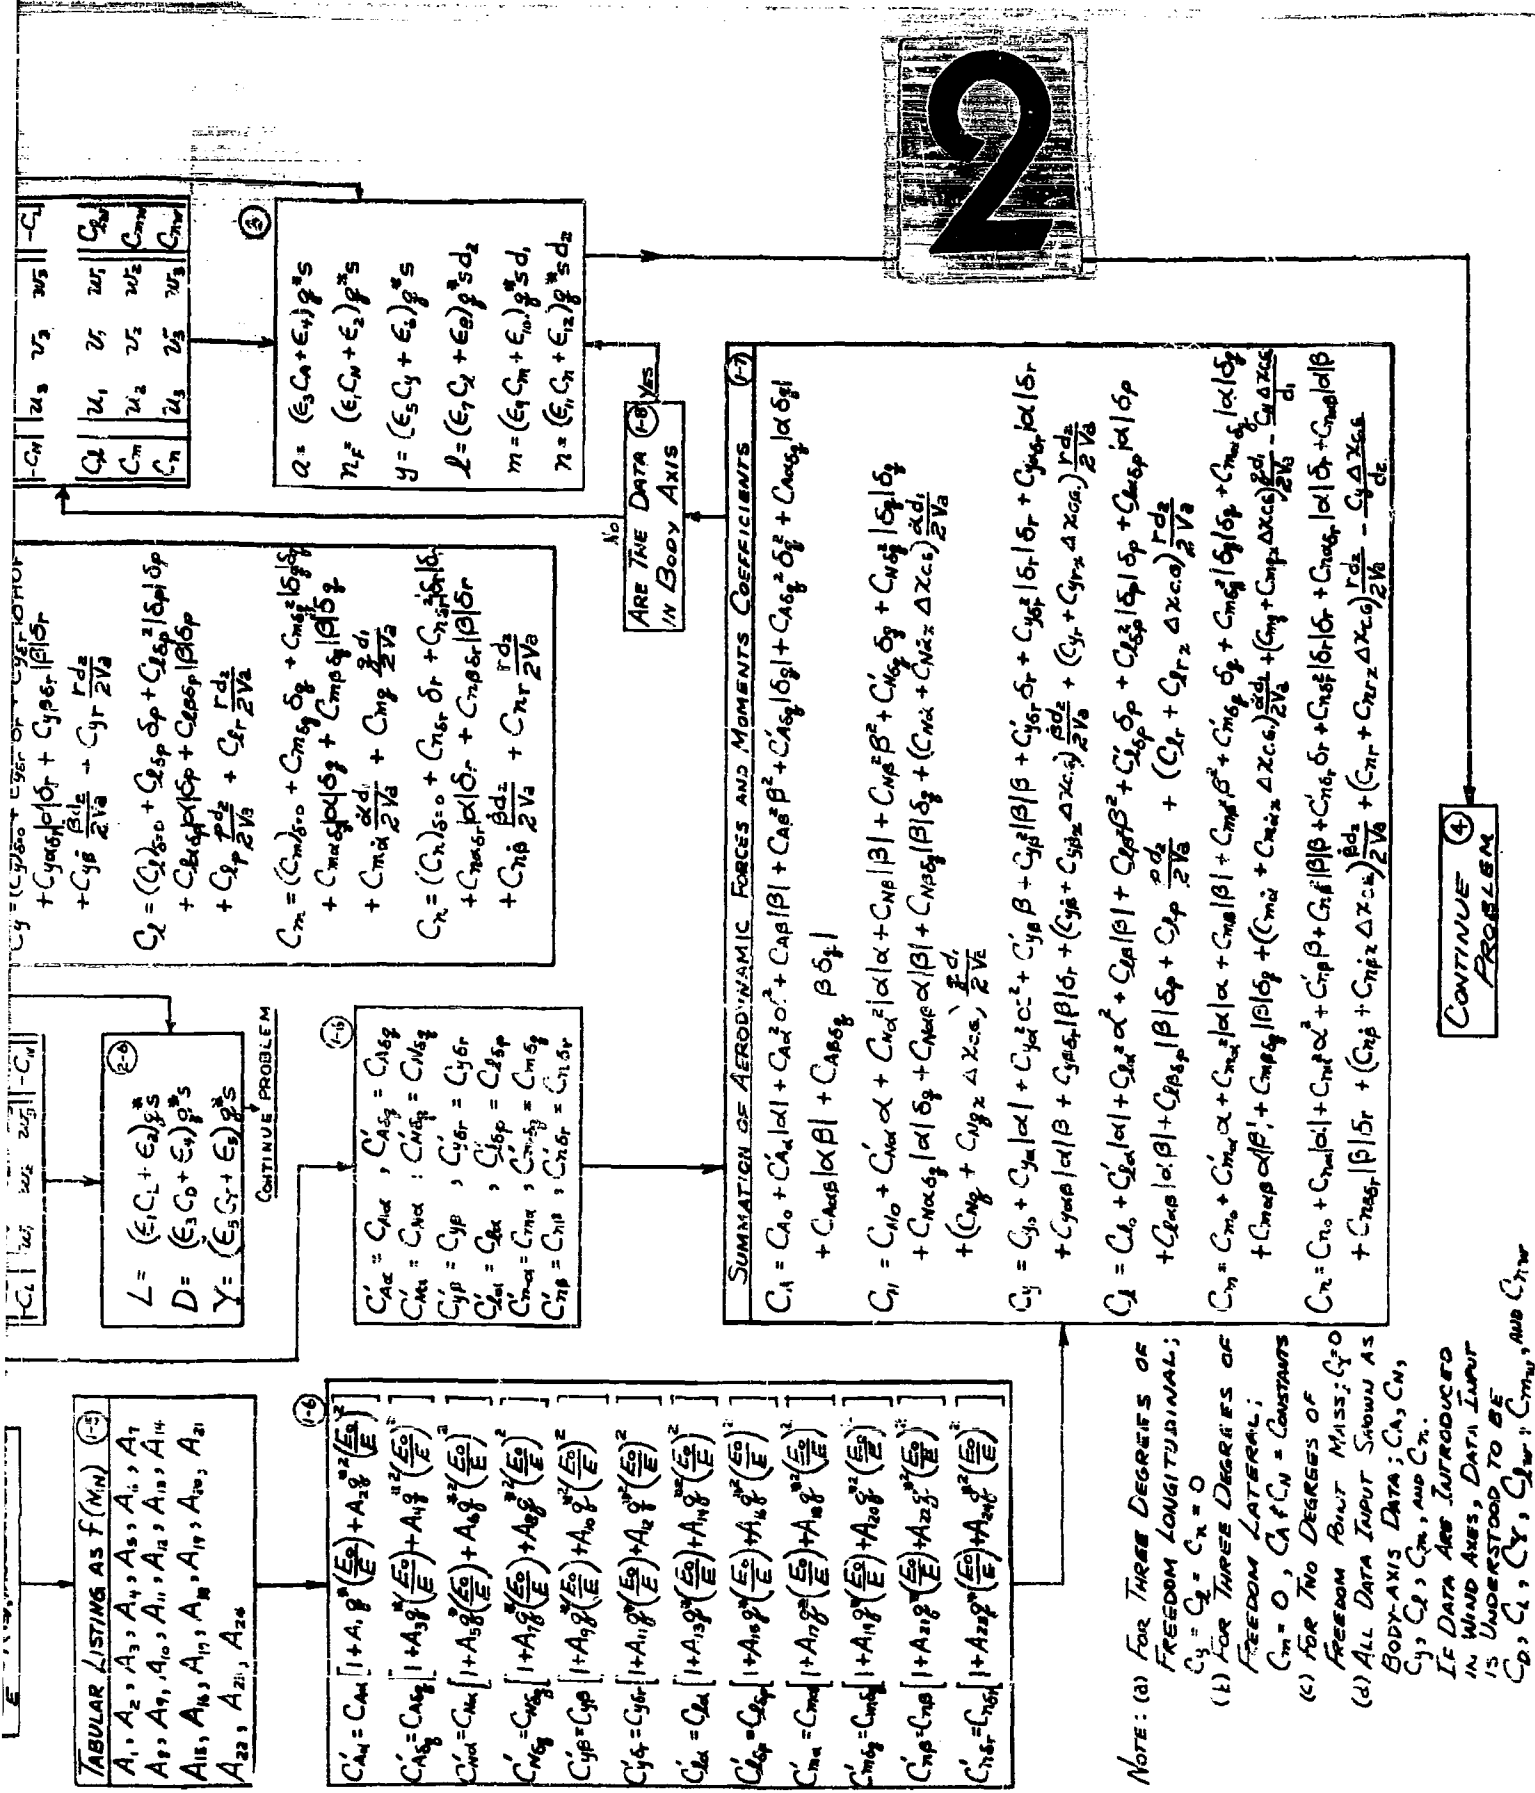 TABULAR LISTING AS f(M_N) (1-5)
A₁, A₂, A₃, A₄, A₅, A₆, A₇
A₈, A₉, A₁₀, A₁₁, A₁₂, A₁₃, A₁₄
A₁₅, A₁₆, A₁₇, A₁₈, A₁₉, A₂₀, A₂₁
A₂₂, A₂₃, A₂₄
(1-6)
C'_Aα = C_Aα [1 + A₁ q* (E₀/E) + A₂ q*² (E₀/E)²]
C'_Aδq = C_Aδq [1 + A₃ q* (E₀/E) + A₄ q*² (E₀/E)²]
C'_Nα = C_Nα [1 + A₅ q* (E₀/E) + A₆ q*² (E₀/E)²]
C'_Nδq = C_Nδq [1 + A₇ q* (E₀/E) + A₈ q*² (E₀/E)²]
C'_yβ = C_yβ [1 + A₉ q* (E₀/E) + A₁₀ q*² (E₀/E)²]
C'_yδr = C_yδr [1 + A₁₁ q* (E₀/E) + A₁₂ q*² (E₀/E)²]
C'_lα = C_lα [1 + A₁₃ q* (E₀/E) + A₁₄ q*² (E₀/E)²]
C'_lδp = C_lδp [1 + A₁₅ q* (E₀/E) + A₁₆ q*² (E₀/E)²]
C'_mα = C_mα [1 + A₁₇ q* (E₀/E) + A₁₈ q*² (E₀/E)²]
C'_mδq = C_mδq [1 + A₁₉ q* (E₀/E) + A₂₀ q*² (E₀/E)²]
C'_nβ = C_nβ [1 + A₂₁ q* (E₀/E) + A₂₂ q*² (E₀/E)²]
C'_nδr = C_nδr [1 + A₂₃ q* (E₀/E) + A₂₄ q*² (E₀/E)²]
NOTE: (a) FOR THREE DEGREES OF
FREEDOM LONGITUDINAL;
C_y = C_l = C_n = 0
(b) FOR THREE DEGREES OF
FREEDOM LATERAL;
C_m = 0, C_A & C_N = CONSTANTS
(c) FOR TWO DEGREES OF
FREEDOM POINT MASS; C_Y = 0
(d) ALL DATA INPUT SHOWN AS
BODY-AXIS DATA; C_A, C_N,
C_y, C_l, C_m, AND C_n.
IF DATA ARE INTRODUCED
IN WIND AXES, DATA INPUT
IS UNDERSTOOD TO BE
C_D, C_L, C_Y, C_lw, C_mw, AND C_nw
-C_L u₁ w₂ w₃ -C_N
(2-6)
L = (ε₁C_L + ε₂) q*S
D = (ε₃C_D + ε₄) q*S
Y = (ε₅C_Y + ε₆) q*S
CONTINUE PROBLEM
(1-16)
C'_Aα = C_Aα, C'_Aδq = C_Aδq
C'_Nα = C_Nα; C'_Nδq = C_Nδq
C'_yβ = C_yβ, C'_yδr = C_yδr
C'_lα = C_lα, C'_lδp = C_lδp
C'_mα = C_mα, C'_mδq = C_mδq
C'_nβ = C_nβ, C'_nδr = C_nδr
SUMMATION OF AERODYNAMIC FORCES AND MOMENTS COEFFICIENTS (1-7)
C_A = C_A₀ + C'_Aα|α| + C_Aα² α² + C_Aβ|β| + C_Aβ² β² + C'_Aδq|δq| + C_Aδq² δq² + C_Aαδq|αδq|
+ C_Aαβ|αβ| + C_Aβδq βδq|
C_N = C_N₀ + C'_Nα α + C_Nα²|α|α + C_Nβ|β| + C_Nβ² β² + C'_Nδq δq + C_Nδq²|δq|δq
+ C_Nαδq|α|δq + C_Nαβ α|β| + C_Nβδq|β|δq + (C_Nα̇ + C_Nα̇x Δx_C.G.) α̇d₁/2Va
+ (C_Nq + C_Nqx Δx_C.G.) qd₁/2Va
C_y = C_y₀ + C_yα|α| + C_yα² α² + C'_yβ β + C_yβ²|β|β + C'_yδr δr + C_yδr²|δr|δr + C_yαδr|α|δr
+ C_yαβ|α|β + C_yβδr|β|δr + (C_yβ̇ + C_yβ̇x Δx_C.G.) β̇d₂/2Va + (C_yr + C_yrx Δx_C.G.) rd₂/2Va
C_l = C_l₀ + C'_lα|α| + C_lα² α² + C_lβ|β| + C_lβ² β² + C'_lδp δp + C_lδp²|δp|δp + C_lαδp|α|δp
+ C_lαβ|αβ| + C_lβδp|β|δp + C_lp pd₂/2Va + (C_lr + C_lrx Δx_C.G.) rd₂/2Va
C_m = C_m₀ + C'_mα α + C_mα²|α|α + C_mβ|β| + C_mβ² β² + C'_mδq δq + C_mδq²|δq|δq + C_mαδq|α|δq
+ C_mαβ α|β| + C_mβδq|β|δq + (C_mα̇ + C_mα̇x Δx_C.G.) α̇d₁/2Va + (C_mq + C_mqx Δx_C.G.) qd₁/2Va - C_N Δx_C.G./d₁
C_n = C_n₀ + C_nα|α| + C_nα² α² + C'_nβ β + C_nβ²|β|β + C'_nδr δr + C_nδr²|δr|δr + C_nαδr|α|δr + C_nαβ|α|β
+ C_nβδr|β|δr + (C_nβ̇ + C_nβ̇x Δx_C.G.) β̇d₂/2Va + (C_nr + C_nrx Δx_C.G.) rd₂/2Va - C_y Δx_C.G./d₂
+ C_yαδr|α|δr + C_yβδr|β|δr
+ C_yβ̇ β̇d₂/2Va + C_yr rd₂/2Va
C_l = (C_l)δ=0 + C_lδp δp + C_lδp²|δp|δp
+ C_lαδp|α|δp + C_lβδp|β|δp
+ C_lp pd₂/2Va + C_lr rd₂/2Va
C_m = (C_m)δ=0 + C_mδq δq + C_mδq²|δq|δq
+ C_mαδq|α|δq + C_mβδq|β|δq
+ C_mα̇ α̇d₁/2Va + C_mq qd₁/2Va
C_n = (C_n)δ=0 + C_nδr δr + C_nδr²|δr|δr
+ C_nαδr|α|δr + C_nβδr|β|δr
+ C_nβ̇ β̇d₂/2Va + C_nr rd₂/2Va
NO
ARE THE DATA (1-8)
IN BODY AXIS
YES
-C_N u₃ v₃ w₃ -C_L
C_l u₁ v₁ w₁ C_lw
C_m u₂ v₂ w₂ C_mw
C_n u₃ v₃ w₃ C_nw
(3)
a = (ε₃C_A + ε₄) q*S
n_F = (ε₁C_N + ε₂) q*S
y = (ε₅C_y + ε₆) q*S
l = (ε₇C_l + ε₈) q*S d₂
m = (ε₉C_m + ε₁₀) q*S d₁
n = (ε₁₁C_n + ε₁₂) q*S d₂
CONTINUE (4)
PROBLEM
2